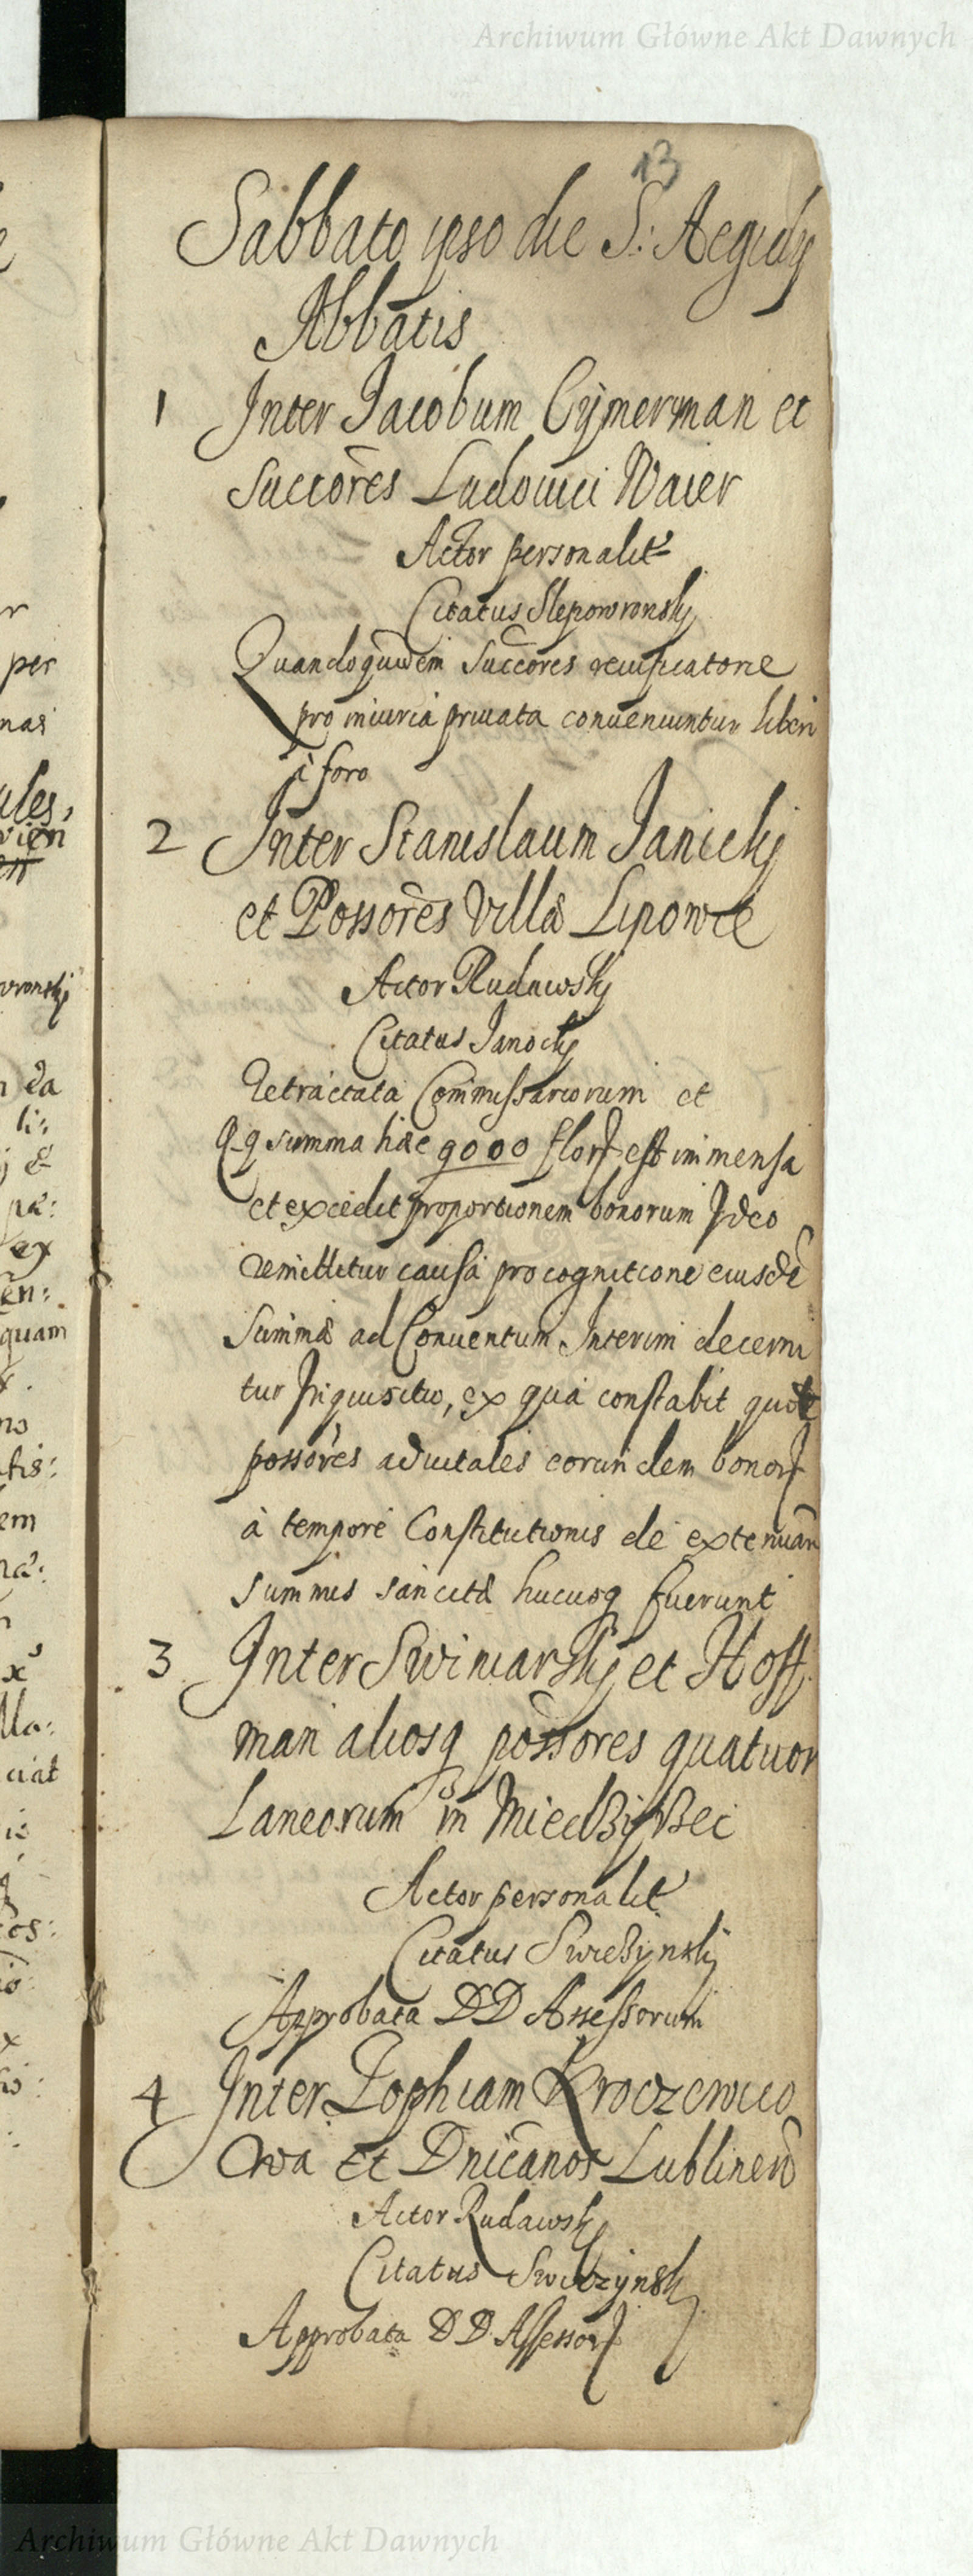 Archiwum Główne Akt Dawnych
13
Sabbato ipso die S: Aegidij
Abbatis
1 Inter Jacobum Cymerman et
Succõres Ludouici Waier
Actor personalit
Citatus Slepowronskj
Quandoquidem Succores
pro iniuria priuata conueniuntur liberi
à foro
2 Inter Stanislaum Janickj
et Possorẽs Villæ Lipowie
Actor Rudawskj
Citatus Janockj
Retractata Commissariorum et
Q-q summa hæc 9000 flor est immensa
et excedit proportionem bonorum Ideo
remittitur causa pro cognitione eiusdẽ
Summæ ad Conuentum Interim decerni
tur Inquisitio, ex qua constabit
possorẽs aduitales eorundem bonor
à tempore Constitutionis de extenuan
summis sancitæ hucusq fuerunt
3 Inter Swiniarskj et Hoff
man aliosq possores quatuor
Laneorum in
Actor personalit
Citatus Swiezynskj
Approbata DD Assessorum
4 Inter Zophiam Kroczewico
wa et Dnicanos Lublinen
Actor Rudawskj
Citatus Swiezynskj
Approbata DD Assessor
per
nas
ules,
wronskj
li:
quam
em
ciat
Archiwum Główne Akt Dawnych